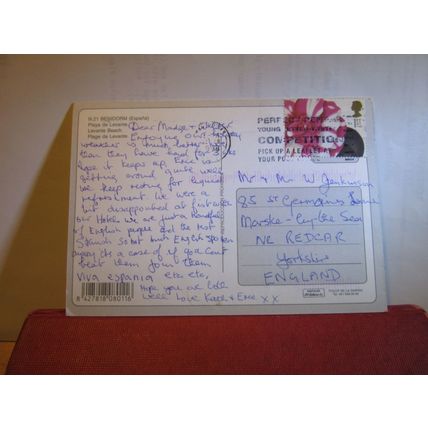 R-21 BENIDORM (España)
Playa de Levante
Levante Beach
Plage de Levante
Dear Madge +
Enjoying our holiday
weather is much hotter
than they have had for
hope it keeps up. Eric is
getting around quite well
we keep resting for liquid
refreshment. We were a
bit disappointed at first with
our Hotel we are just a handful
of English people and the rest
Spanish so not much English spoken
its a case of if you cant
beat them join them
Viva espania etc etc,
Hope you are both
well Love Kath + Eric xx
8 427818 080116
COMPETITION
PICK UP A LEAFLET AT
YOUR
Mr + Mrs W Jenkinson
85 St Germains Lane
Marske-by the Sea
NR REDCAR
Yorkshire
ENGLAND